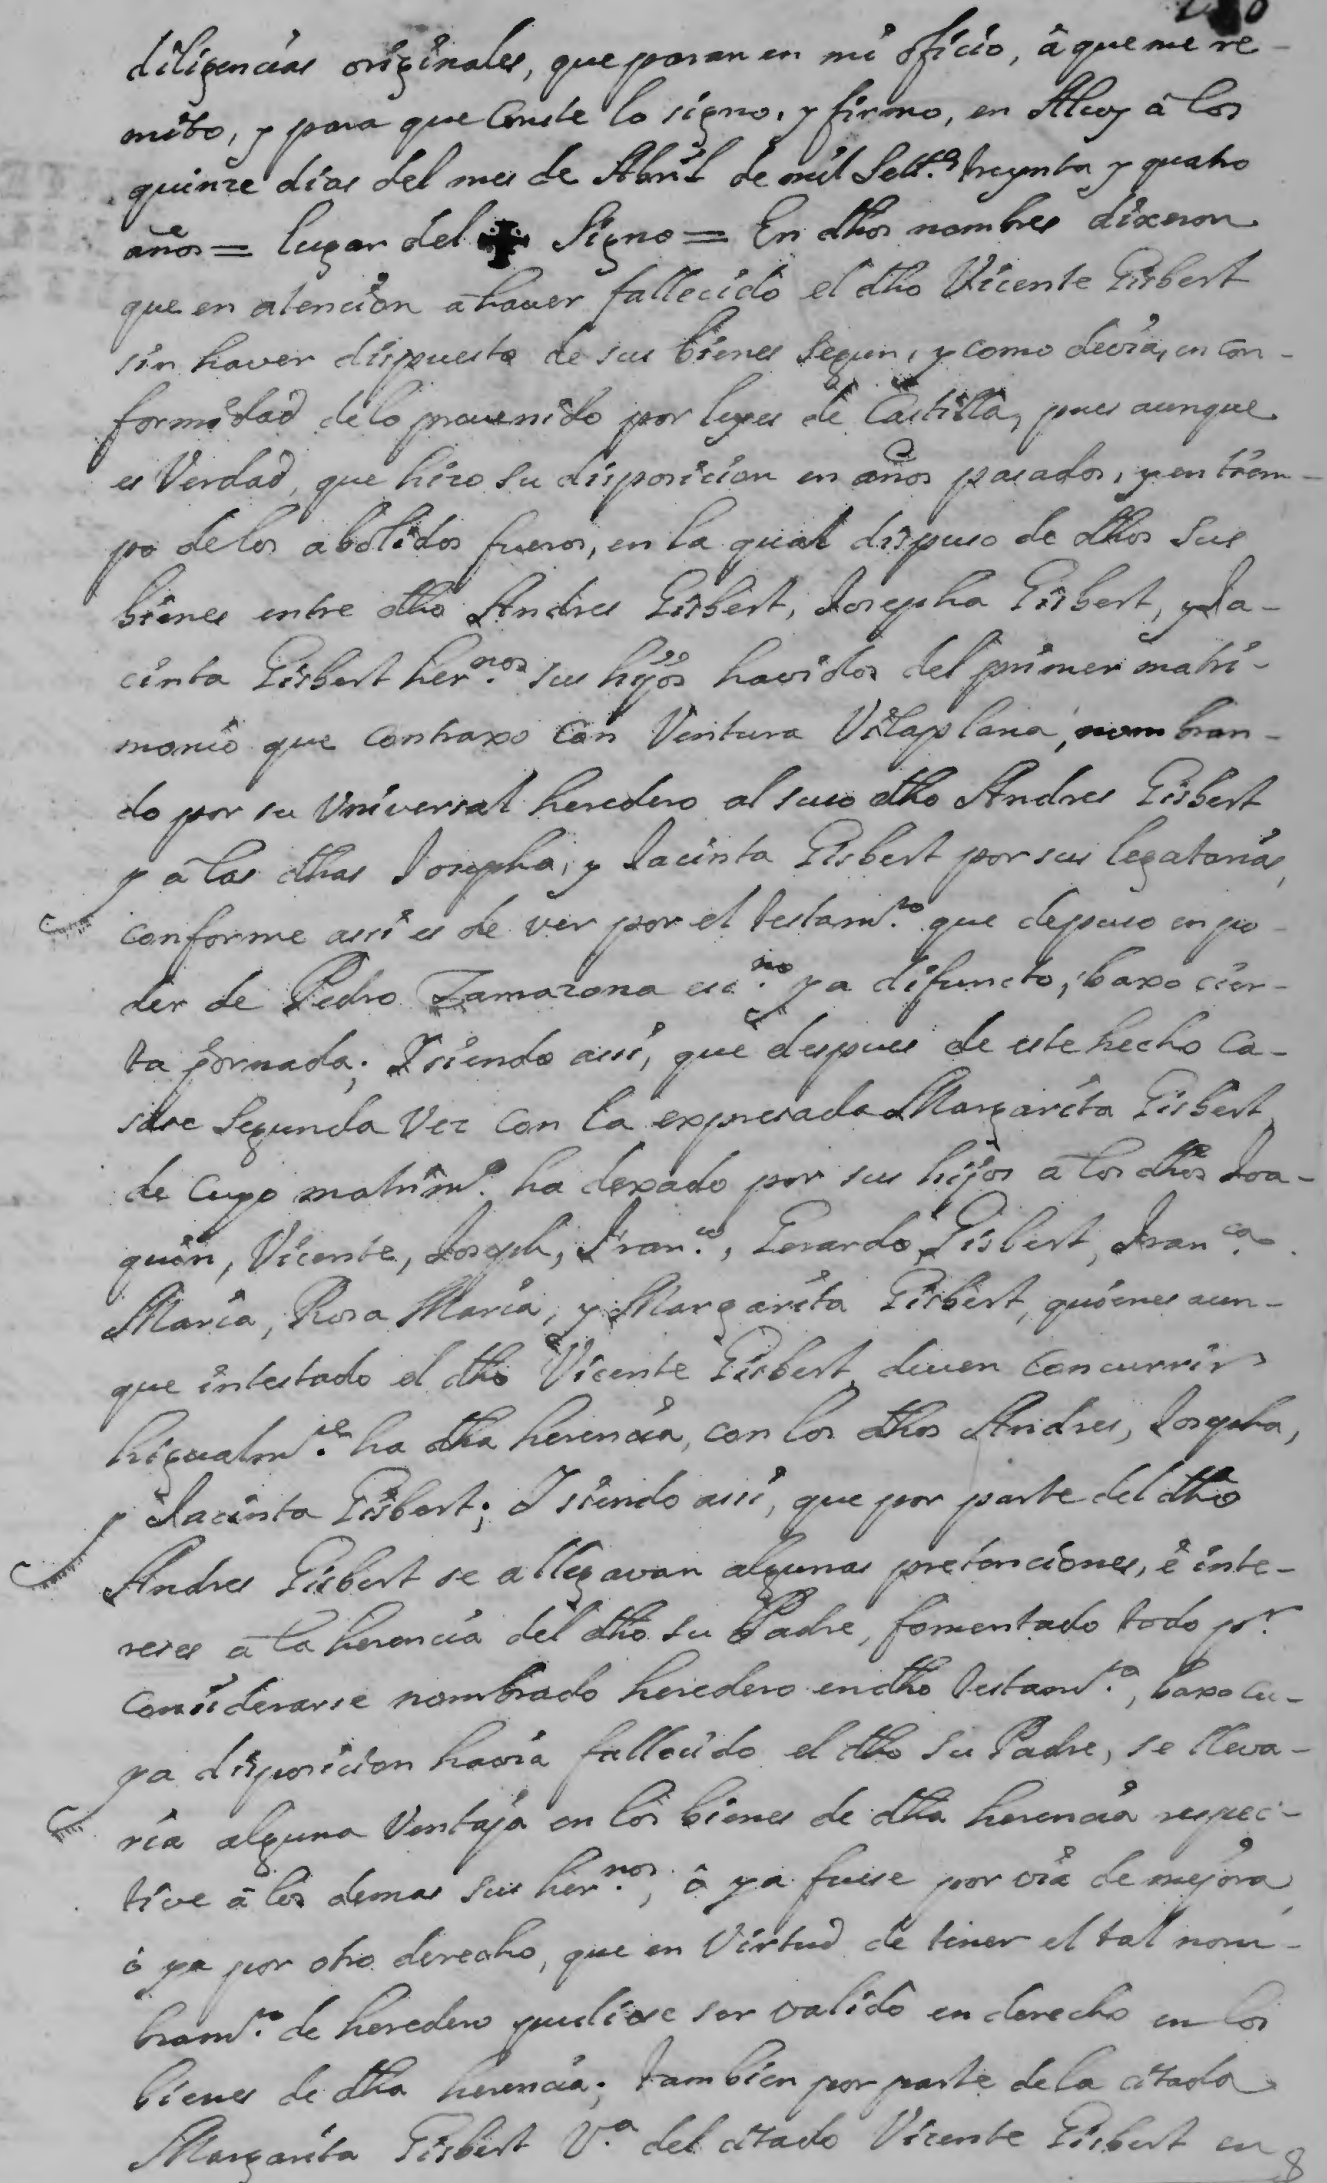 diligencias originales, que paran en mi oficio, â que me re-
mito, y para que Conste lo signo, y firmo, en Alcoy â los
quinze dias del mes de Abril de mil Sett.s treynta y quatro
años = lugar del ✠ Signo = En dhos nombres dixeron
que en atencion a haver fallecido el dho Vicente Gisbert
sin haver dispuesto de sus bienes segun, y como devia, en con-
formidad de lo prevenido por leyes de Castilla, pues aunque
es Verdad, que hizo su disposicion en años pasados, y en tiem-
po de los abolidos fueros, en la qual dispuso de dhos sus
bienes entre dho Andres Gisbert, Josepha Gisbert, y Ja-
cinta Gisbert her.nos sus hijos havidos del primer matri-
monio que contraxo con Ventura Vilaplana, nombran-
do por su Vniversal heredero al suso dho Andres Gisbert
y a las dhas Josepha, y Jacinta Gisbert por sus legatarias,
conforme assi es de ver por el testam.to que depuso en po-
der de Pedro Zamarona es.no ya difuncto, baxo cier-
ta jornada; Y siendo assi, que despues de este hecho ca-
sase Segunda Vez con la expresada Margarita Gisbert,
de cuyo matrim.o ha dexado por sus hijos a los dhos Joa-
quin, Vicente, Joseph, Fran.co, Gerardo Gisbert, Fran.ca
Maria, Rosa Maria, y Margarita Gisbert, quienes aun-
que intestado el dho Vicente Gisbert, deven concurrir
higualm.te ha dha herencia, con los dhos Andres, Josepha,
y Jacinta Gisbert; Y siendo assi, que por parte del dho
Andres Gisbert se allegavan algunas pretenciones, è inte-
reses a la herencia del dho su Padre, fomentado todo p.r
considerarse nombrado heredero en dho testam.to, baxo cu-
ya disposicion havia fallecido el dho su Padre, se lleva-
ria alguna Ventaja en los bienes de dha herencia respec-
tive â los demas sus her.nos, ô ya fuese por via de mejora,
ô ya por otro derecho, que en Virtud de tener el tal nom-
bram.to de heredero pudiese ser valido en derecho en los
bienes de dha herencia; tambien por parte de la citada
Margarita Gisbert V.a del citado Vicente Gisbert en